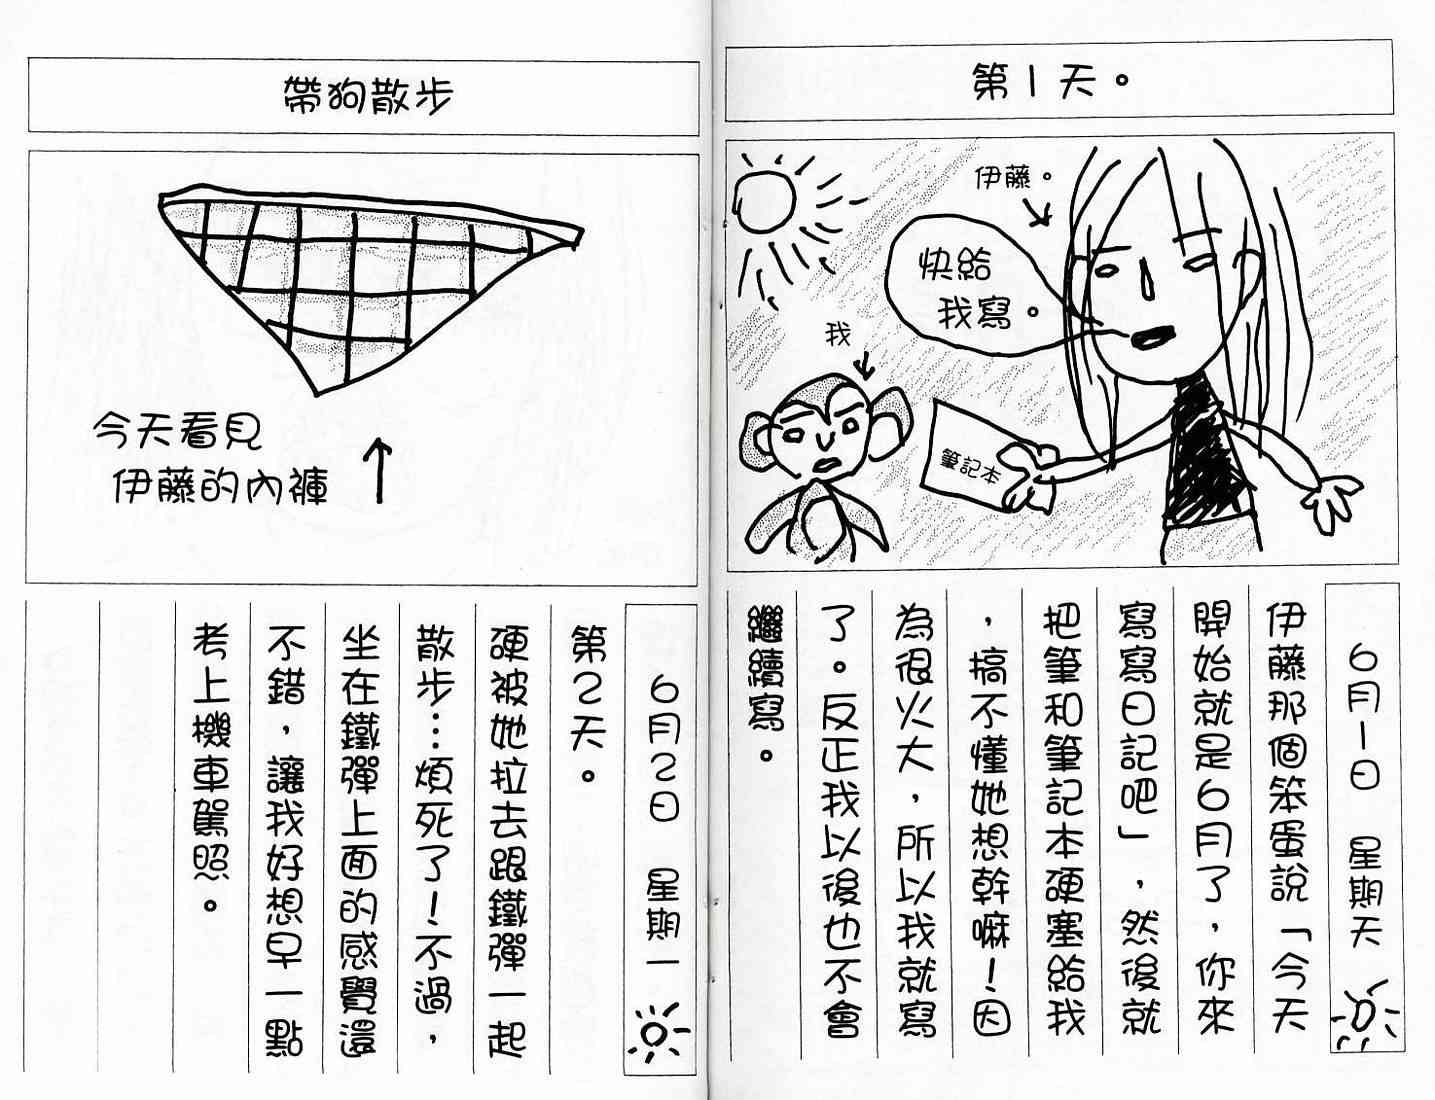 第1天。
伊藤。
快給
我寫。
我
筆記本
6月1日 星期天
伊藤那個笨蛋說「今天
開始就是6月了，你來
寫寫日記吧」，然後就
把筆和筆記本硬塞給我
，搞不懂她想幹嘛！因
為很火大，所以我就寫
了。反正我以後也不會
繼續寫。
帶狗散步
今天看見
伊藤的內褲
6月2日 星期一
第2天。
硬被她拉去跟鐵彈一起
散步…煩死了！不過，
坐在鐵彈上面的感覺還
不錯，讓我好想早一點
考上機車駕照。